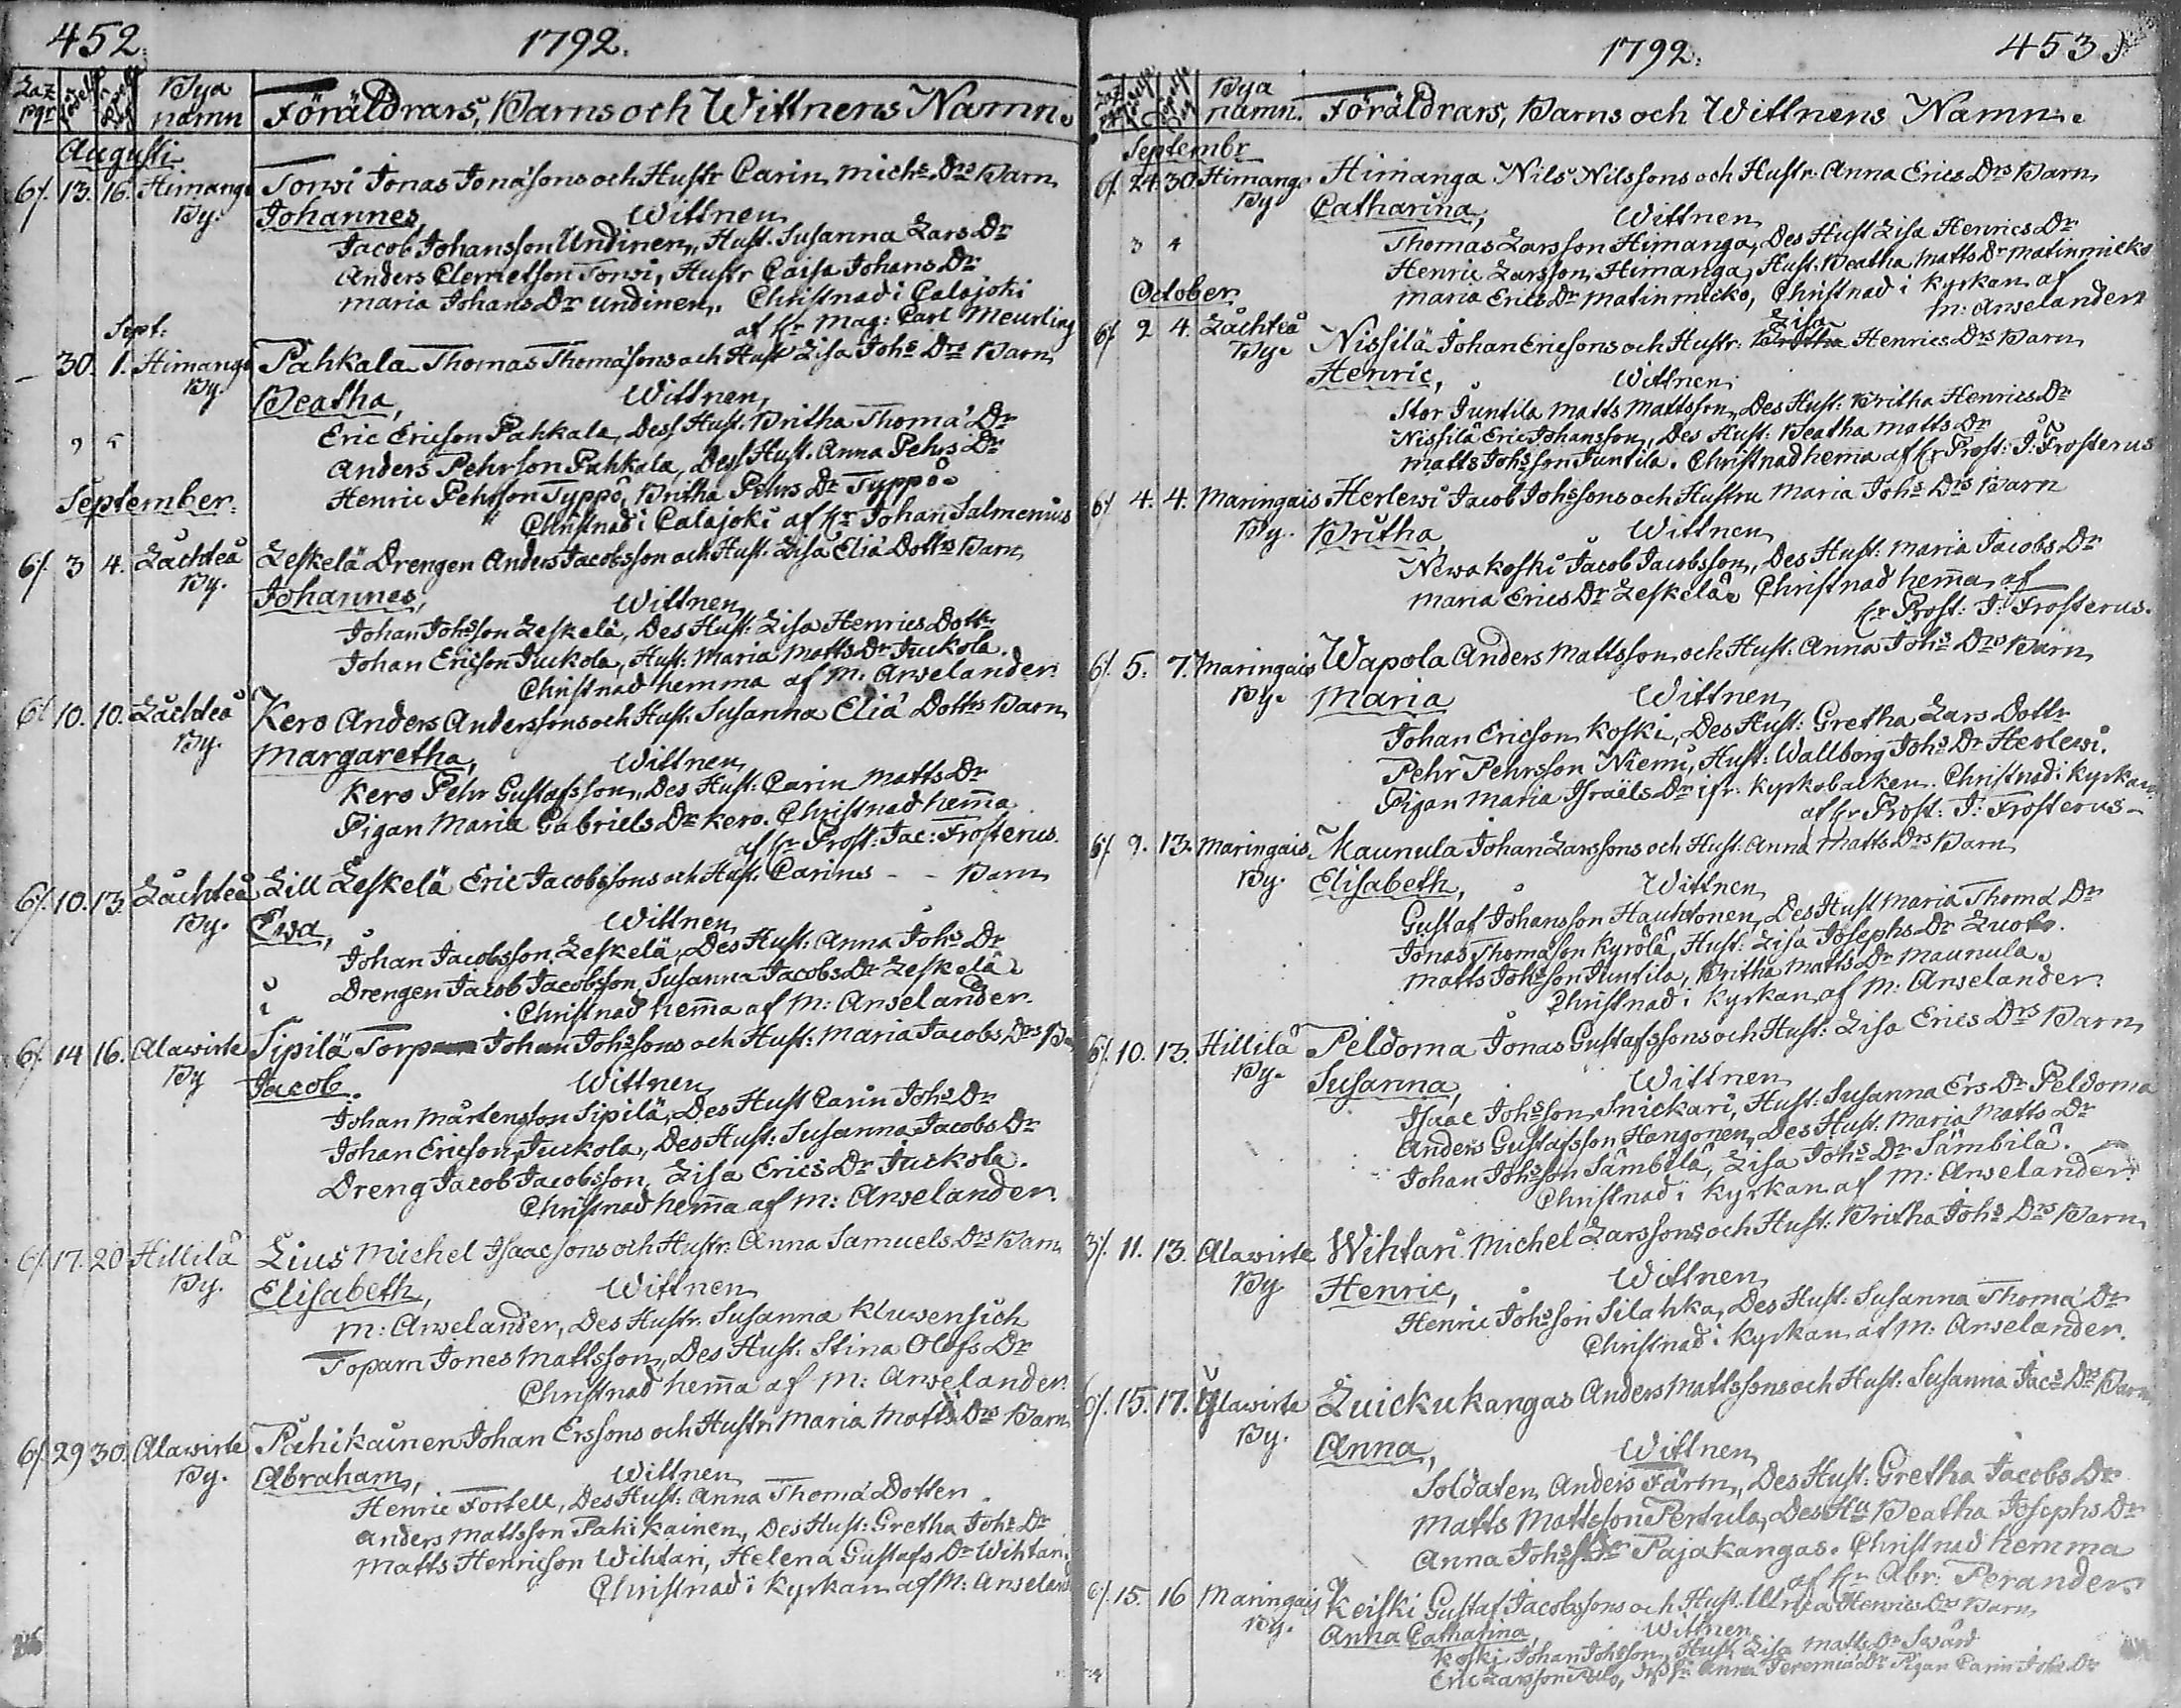 452.
1792.
Laz pgr födelse Döpelse Dag Bya namn Föräldrars, Barns och Wittnens Namn.
Augusti
6/. 13. 16. Himanga Torvi Jonas Jonæsons och Hustr Carin Michs Drs Barn
By. Johannes, Wittnen
Jacob Johansson Undinen, Hust. Susanna Lars Dr
Anders Clemetson Torvi, Hustr Caisa Johans Dr
Maria Johans Dr Undinen. Christnad i Calajoki
af Hr Mag: Carl Meurling
Sept:
— 30. 1. Himanga Pahkala Thomas Thomæsons och Hust Lisa Johs Drs Barn
By. Beatha, Wittnen,
Eric Ericson Pahkala, Dess Hust. Britha Thomæ Dr
Anders Pehrson Pahkala, Dess Hust. Anna Pehrs Dr
Henric Pehrson Typpö, Britha Pehrs Dr Typpö.
Christnad i Calajoki af Hr Johan Salmenius
September.
6/. 3 4. Låchteå Leskelä Drengen Anders Jacobsson och Hust. Lisa Eliæ Dottrs Barn
By. Johannes, Wittnen
Johan Johsson Leskelä, Des Hust: Lisa Henrics Dottr
Johan Ericson Juckola, Hust: Maria Matts Dr Juckola.
Christnad hemma af M. Arvelander.
6/. 10. 10. Låchteå Kero Anders Anderssons och Hust. Susanna Eliæ Dottrs Barn
By. Margaretha, Wittnen
Kero Pehr Gustafsson, Des Hust: Carin Matts Dr
Pigan Maria Gabriels Dr Kero. Christnad hema
af Hr Prost: Jac: Frosterus.
6/. 10. 13. Låchteå Lill Leskelä Eric Jacobssons och Hust. Carins - - Barn
By. Ewa, Wittnen
Johan Jacobsson Leskelä, Des Hust: Anna Johs Dr
Drengen Jacob Jacobsson, Susanna Jacobs Dr Leskelä.
Christnad hema af M: Arvelander.
6/. 14 16. Alawirte Sipilä Torp Johan Johssons och Hust: Maria Jacobs Drs Ba
By Jacob. Wittnen
Johan Mårtensson Sipilä, Des Hust Carin Johs Dr
Johan Ericson Juckola, Des Hust: Susanna Jacobs Dr
Dreng Jacob Jacobsson, Lisa Erics Dr Juckola.
Christnad hema af M: Arvelander.
6/. 17. 20 Hillilä Lius Michel Isaacsons och Hustr. Anna Samuels Drs Barn
By. Elisabeth, Wittnen
M: Arvelander, Des Hustr. Susanna Kluwensich
Toparn Jones Mattsson, Des Hust. Stina Olofs Dr
Christnad hema af M: Arvelander.
6/. 29 30. Alawirte Pahikainen Johan Erssons och Hustr. Maria Matts Drs Barn
By. Abraham, Wittnen
Henric Fortell, Des Hust: Anna Thomæ Dotter
Anders Mattsson Pahikainen, Des Hust: Gretha Johs Dr
Matts Henricson Wihtari, Helena Gustafs Dr Wihtari.
Christnad i Kyrkan af M: Arveland
1792.
453.
Bya namn. Föräldrars, Barns och Wittnens Namn.
Septembr
6/. 24 30. Himanga Himanga Nils Nilssons och Hustr. Anna Erics Drs Barn
By Catharina, Wittnen
Thomas Larsson Himanga, Des Hust Lisa Henrics Dr
Henric Larsson Himanga, Hust: Beatha Matts Dr Matinmicko
Maria Erics Dr Matinmicko, Christnad i Kyrkan af
M: Arvelander
October
6/. 2 4. Låchteå Nissilä Johan Ericsons och Hustr. Lisa Henrics Drs Barn
By. Henric, Wittnen
Stor Juntila Matts Mattsson, Des Hust: Britha Henrics Dr
Nissilä Eric Johansson, Des Hust: Beatha Matts Dr
Matts Johsson Juntila. Christnad hema af Hr Prost: J: Frosterus
6/. 4. 4. Maringais Herlewi Jacob Johssons och Hustru Maria Johs Drs Barn
By. Britha Wittnen
Newakoski Jacob Jacobsson, Des Hust: Maria Jacobs Dr
Maria Erics Dr Leskelä. Christnad hema af
Hr Prost: J: Frosterus.
6/. 5. 7. Maringais Wapola Anders Mattsson och Hust. Anna Johs Drs Barn
By. Maria Wittnen
Johan Ericson Koski, Des Hust: Gretha Lars Dottr
Pehr Pehrsson Niemi, Hust: Wallborg Johs Dr Herlewi.
Pigan Maria Israëls Dr ifr: Kyrkobacken. Christnad i Kyrkan
af Hr Prost: J: Frosterus -
6/. 9. 13. Maringais Maunula Johan Larssons och Hust: Anna Matts Drs Barn
By. Elisabeth, Wittnen
Gustaf Johansson Hauhtonen, Des Hust Maria Thomæ Dr
Jonas Thomæson Kyrölä, Hust: Lisa Josephs Dr Luoto.
Matts Johsson Juntila, Britha Matts Dr Maunula.
Christnad i Kyrkan af M: Arvelander
6/. 10. 13. Hillilä Peldoma Jonas Gustafssons och Hust: Lisa Erics Drs Barn
By. Susanna, Wittnen
Isaac Johsson Snickari, Hust: Susanna Ers Dr Peldoma
Anders Gustafsson Hangonen, Des Hust: Maria Matts Dr
Johan Johsson Sämbilä, Lisa Johs Dr Sämbilä.
Christnad i Kyrkan af M: Arvelander.
3/. 11. 13. Alawirte Wihtari Michel Larssons och Hust: Britha Johs Drs Barn
By Henric, Wittnen
Henric Johsson Silahka, Des Hust: Susanna Thomæ Dr
Christnad i Kyrkan af M: Arvelander.
6/. 15. 17. Ylawirte Luickukangas Anders Mattssons och Hust: Susanna Jacs Drs Barn
By. Anna, Wittnen
Soldaten Anders Färm, Des Hust: Gretha Jacobs Dr
Matts Mattsson Pertula, Des Hu Beatha Josephs Dr
Anna Johs Dr Pajakangas. Christnad hemma
af Hr Abr: Perander
6/. 15. 16 Maringais Keiski Gustaf Jacobssons och Hust. Ulrica Henrics Drs Barn
By. Anna Catharina Wittnen
Koski Johan Johsson, Hust Lisa Matts Dr Swärd
Eric Larsson Palo, Anna Jeremiæ Dr Pigan Carin Johs Dr